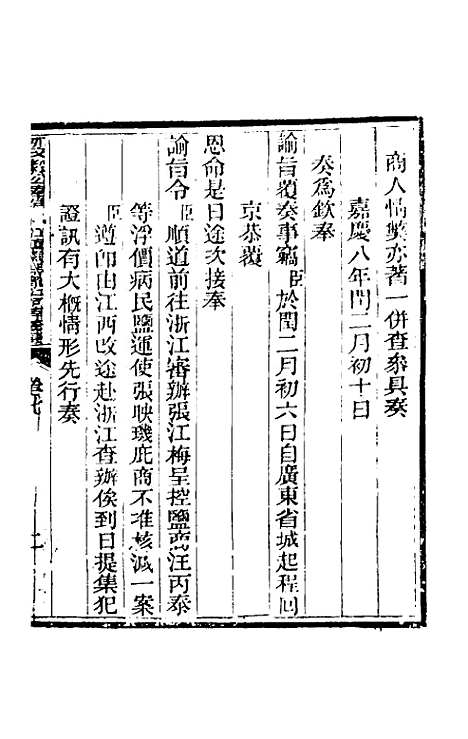 商人情獘亦著一併查叅具奏
嘉慶八年閏二月初十日
奏爲欽奉
諭旨覆奏事竊臣於閏二月初六日自廣東省城起程回
京恭覆
恩命是日途次接奉
諭旨令臣順道前往浙江審辦張江梅呈控鹽商汪丙泰
等浮價病民鹽運使張映璣庇商不准核减一案
臣遵即由江西改途赴浙江查辦俟到日提集犯
證訊有大槪情形先行奏
卷七
二